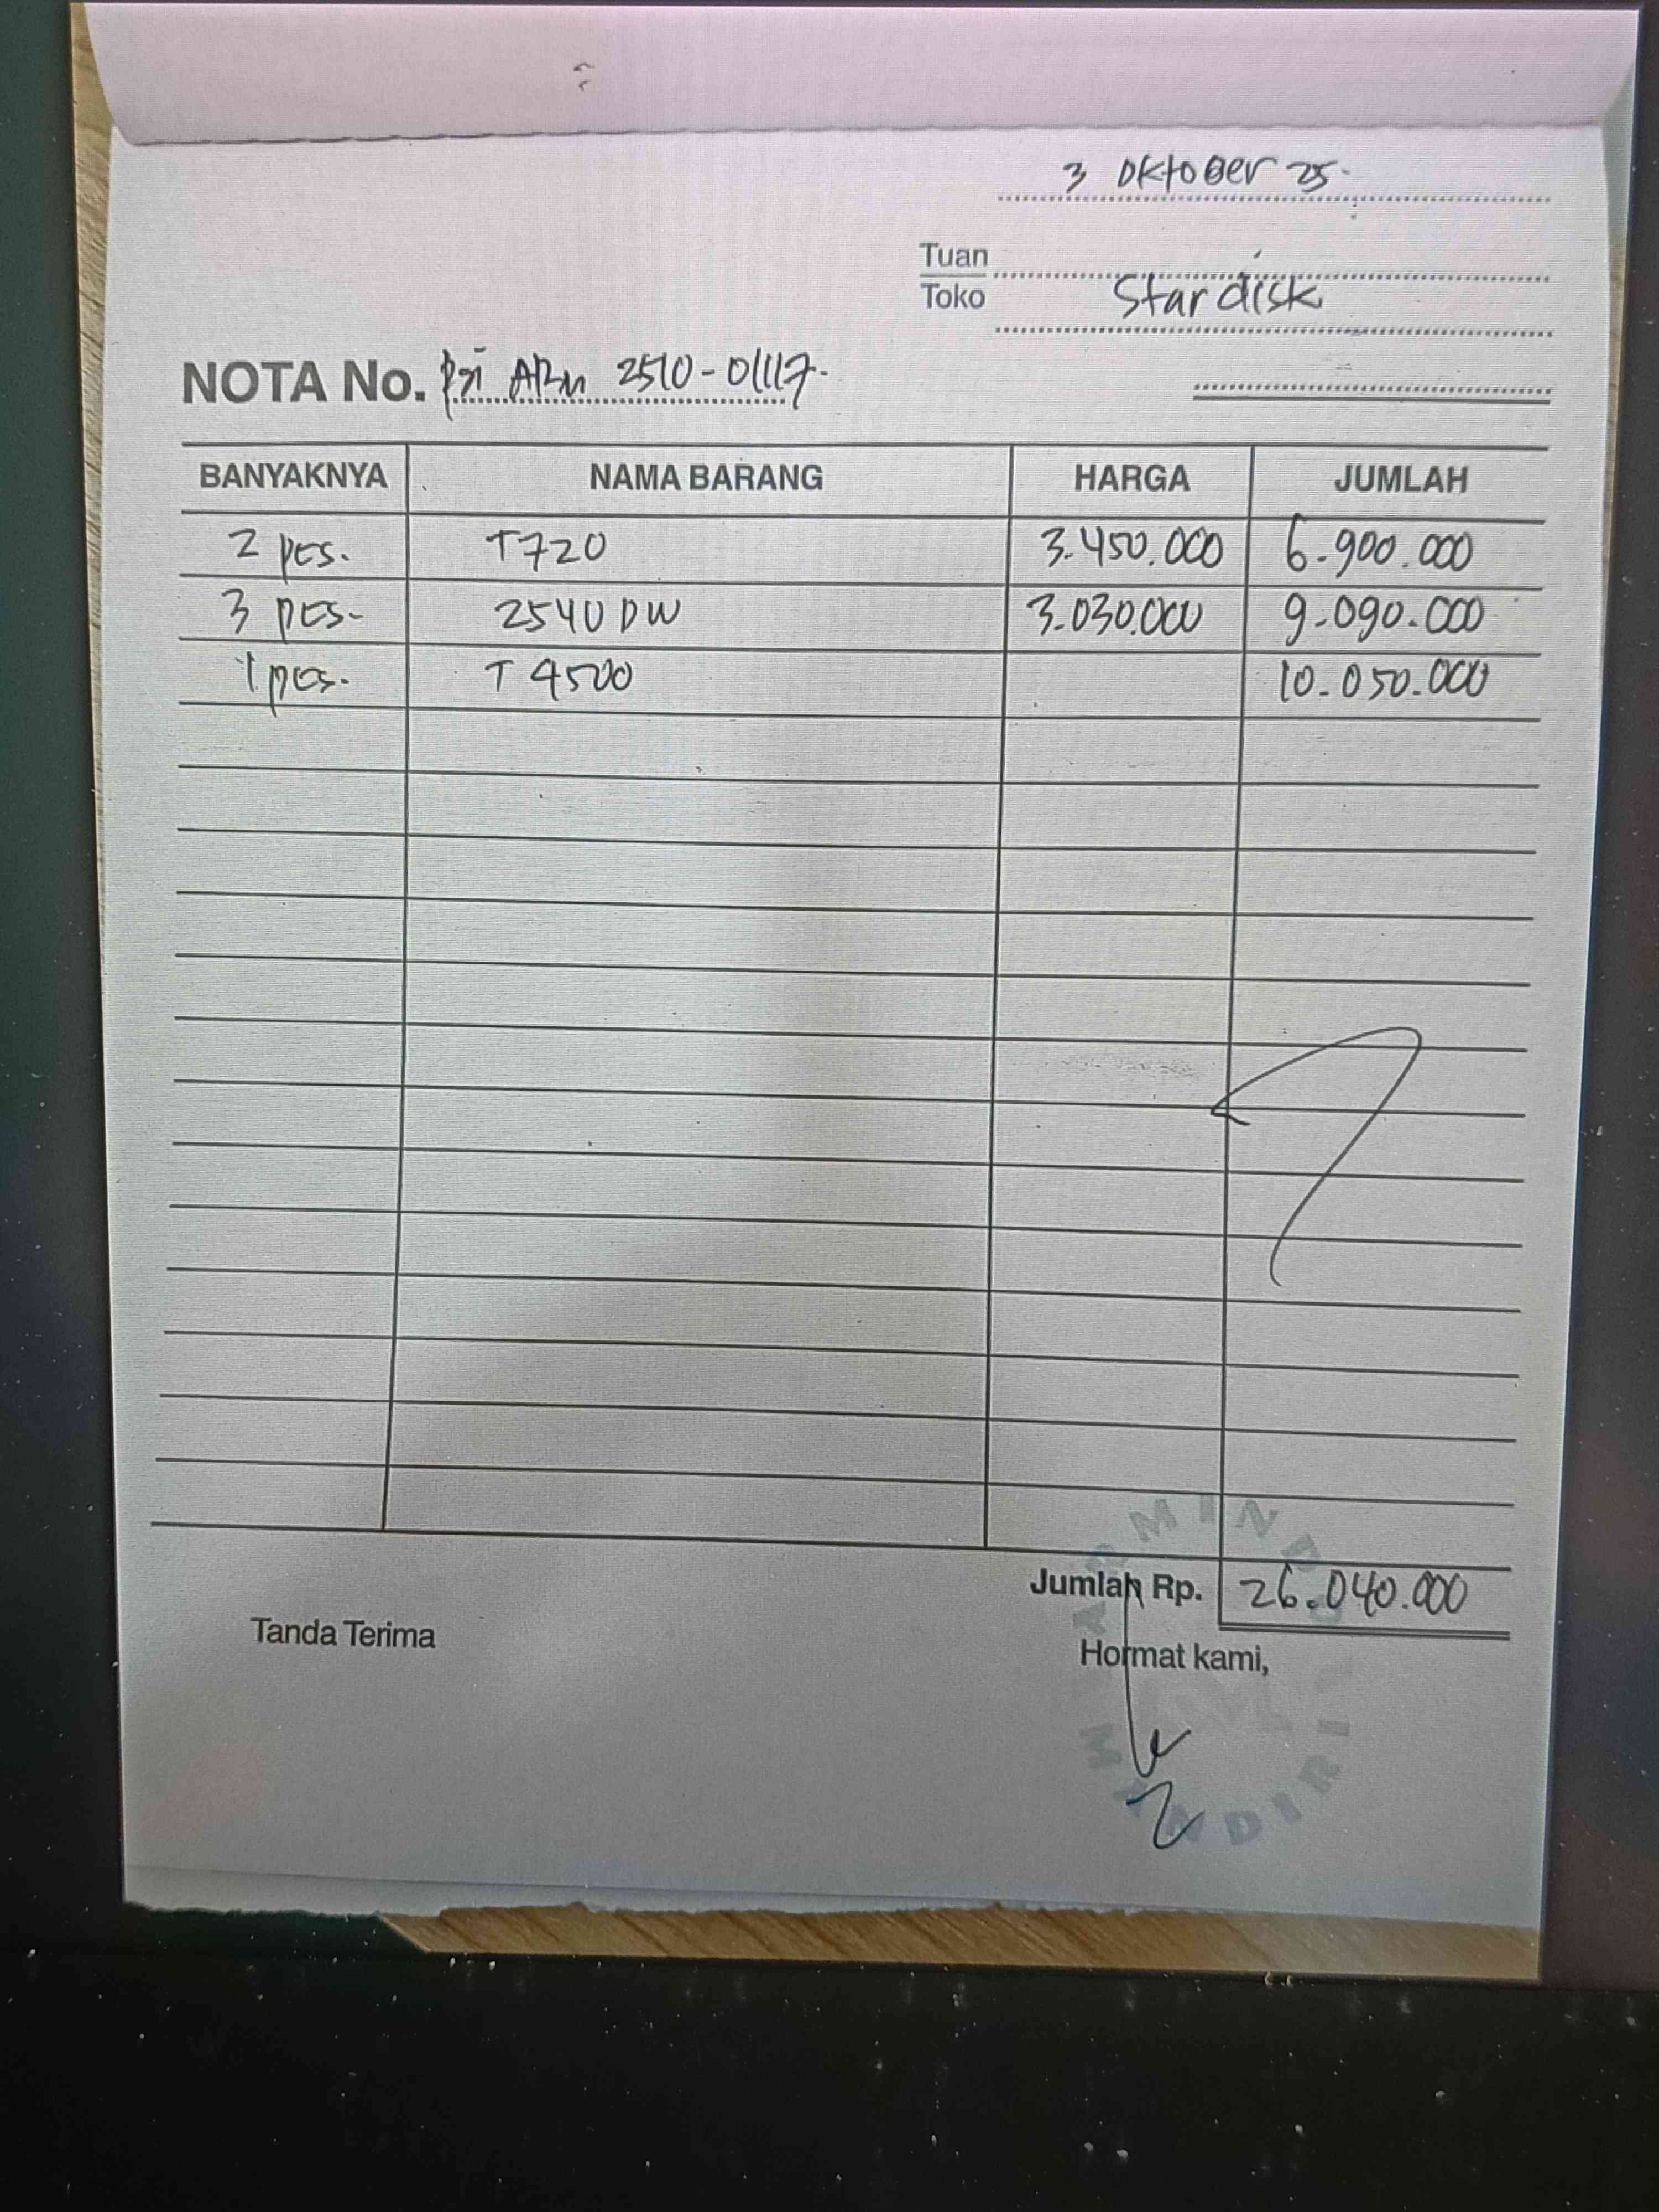 3 Oktober 25.
Tuan
Toko Stardisk
NOTA No. 2510-01117.
BANYAKNYA NAMA BARANG HARGA JUMLAH
2 pcs. T720 3.450.000 6.900.000
3 pcs. 2540 DW 3.030.000 9.090.000
1 pcs. T 4500 10.050.000
Jumlah Rp. 26.040.000
Tanda Terima Hormat kami,
MANDIRI